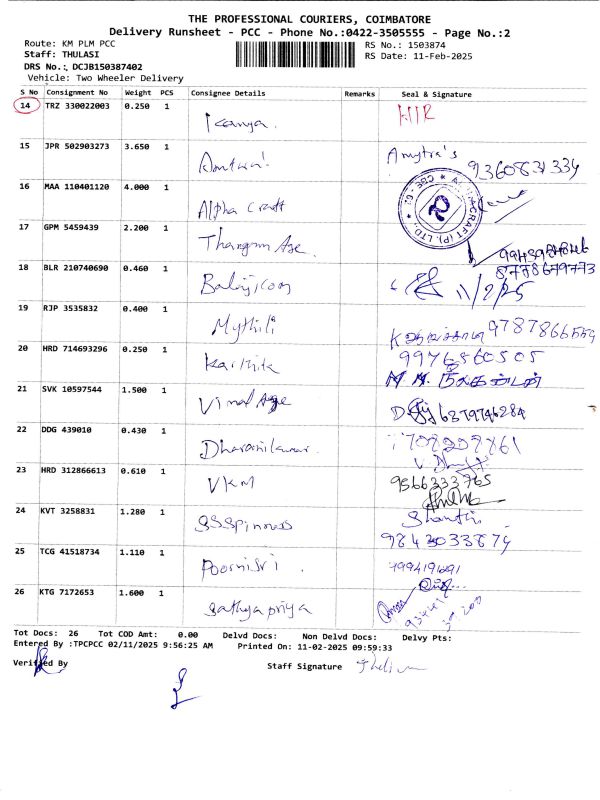 THE PROFESSIONAL COURIERS, COIMBATORE
Delivery Runsheet - PCC - Phone No.:0422-3505555 - Page No.:2
Route: KM PLM PCC
RS No.: 1503874
Staff: THULASI
RS Date: 11-Feb-2025
DRS No.: DCJB150387402
Vehicle: Two Wheeler Delivery
S No Consignment No Weight PCS Consignee Details Remarks Seal & Signature
14 TRZ 330022003 0.250 1 Kanya.
15 JPR 502903273 3.650 1 Amytra's 9360831334
16 MAA 110401120 4.000 1 Alpha Craft
17 GPM 5459439 2.200 1 Thangam Age.
8778679773
18 BLR 210740690 0.460 1 Balaji com 11/2/25
19 RJP 3535832 0.400 1 Mythili 9787866559
20 HRD 714693296 0.250 1 Karthik 9976860505
21 SVK 10597544 1.500 1 Vimal Age 6379746284
22 DDG 439010 0.430 1 Dharanikumar.
23 HRD 312866613 0.610 1 VKM 9566333765
24 KVT 3258831 1.280 1 Shanthi
9843033874
25 TCG 41518734 1.110 1 Poornisri. 9994191691
26 KTG 7172653 1.600 1 Sathya priya
Tot Docs: 26 Tot COD Amt: 0.00 Delvd Docs: Non Delvd Docs: Delvy Pts:
Entered By :TPCPCC 02/11/2025 9:56:25 AM Printed On: 11-02-2025 09:59:33
Verified By Staff Signature